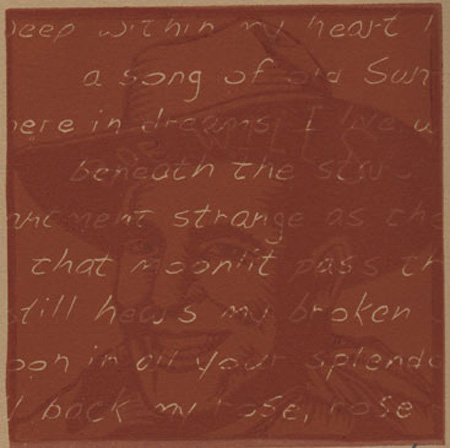 eep within my heart l
a song of old San
ere in dreams I live w
WILLS
beneath the stars
ntment strange as the
that moonlit pass th
till hears my broken
oon in all your splendo
l back my rose, rose